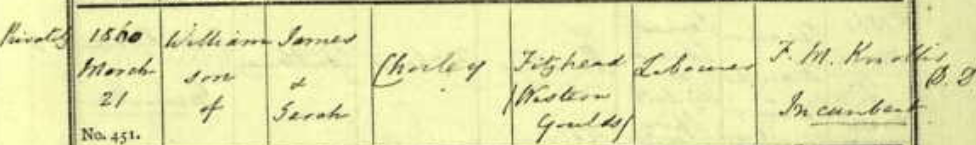 Privately
1860
March
21
No. 451.
William
son
of
James
&
Sarah
Chorley
Fitzhead
(Western
Goulds)
Labourer
F. M. Knollis B. D
Incumbent